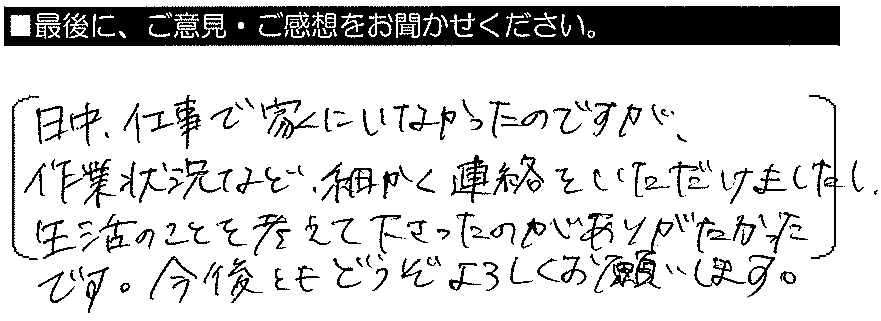 ■最後に、ご意見・ご感想をお聞かせください。
日中、仕事で家にいなかったのですが、
作業状況など、細かく連絡をいただけましたし、
生活のことを考えて下さったのがありがたかった
です。今後ともどうぞよろしくお願いします。